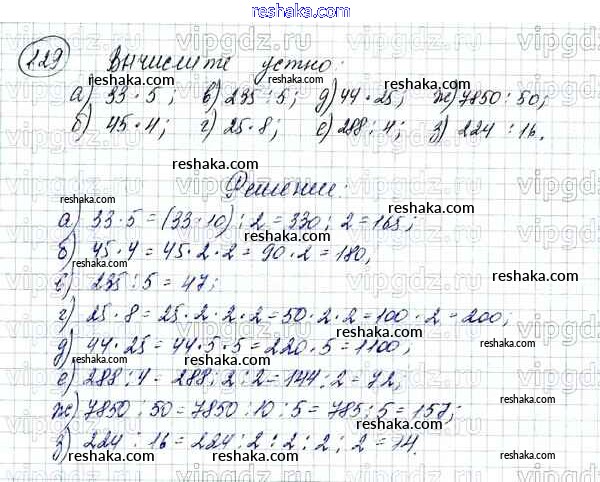 reshaka.com
229 Вычислите устно:
а) 33 · 5; в) 235 : 5; д) 44 · 25; ж) 7850 : 50;
б) 45 · 4; г) 25 · 8; е) 288 : 4; з) 224 : 16.
Решение:
а) 33 · 5 = (33 · 10) : 2 = 330 : 2 = 165;
б) 45 · 4 = 45 · 2 · 2 = 90 · 2 = 180,
в) 235 : 5 = 47;
г) 25 · 8 = 25 · 2 · 2 · 2 = 50 · 2 · 2 = 100 · 2 = 200;
д) 44 · 25 = 44 · 5 · 5 = 220 · 5 = 1100,
е) 288 : 4 = 288 : 2 : 2 = 144 : 2 = 72,
ж) 7850 : 50 = 7850 : 10 : 5 = 785 : 5 = 157;
з) 224 : 16 = 224 : 2 : 2 : 2 : 2 = 14.